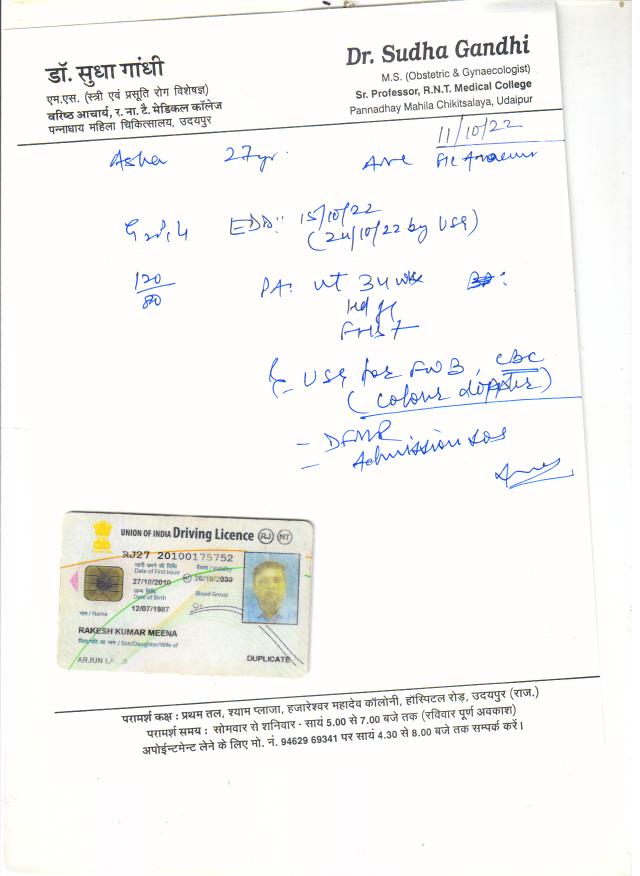 डॉ. सुधा गांधी
एम.एस. (स्त्री एवं प्रसूति रोग विशेषज्ञ)
वरिष्ठ आचार्य, र. ना. टै. मेडिकल कॉलेज
पन्नाधाय महिला चिकित्सालय, उदयपुर
Dr. Sudha Gandhi
M.S. (Obstetric & Gynaecologist)
Sr. Professor, R.N.T. Medical College
Pannadhay Mahila Chikitsalaya, Udaipur
11/10/22
Asha 27yr.
EDD: 15/10/22
(24/10/22 by USG)
120
80
PA: UT 34 wks
FHS +
USG for FWB, CBC
(colour doppler)
- DFMR
- Admission sos
UNION OF INDIA Driving Licence RJ MT
RJ27 20100175752
जारी करने की तिथि वैधता/Validity
Date of First Issue
27/10/2010 NT 26/10/2030
जन्म तिथि
Date of Birth Blood Group
12/07/1987
नाम / Name
RAKESH KUMAR MEENA
पिता/पति का नाम / Son/Daughter/Wife of
ARJUN
DUPLICATE
परामर्श कक्ष : प्रथम तल, श्याम प्लाजा, हजारेश्वर महादेव कॉलोनी, हॉस्पिटल रोड़, उदयपुर (राज.)
परामर्श समय : सोमवार से शनिवार - सायं 5.00 से 7.00 बजे तक (रविवार पूर्ण अवकाश)
अपोईन्टमेन्ट लेने के लिए मो. नं. 94629 69341 पर सायं 4.30 से 8.00 बजे तक सम्पर्क करें।